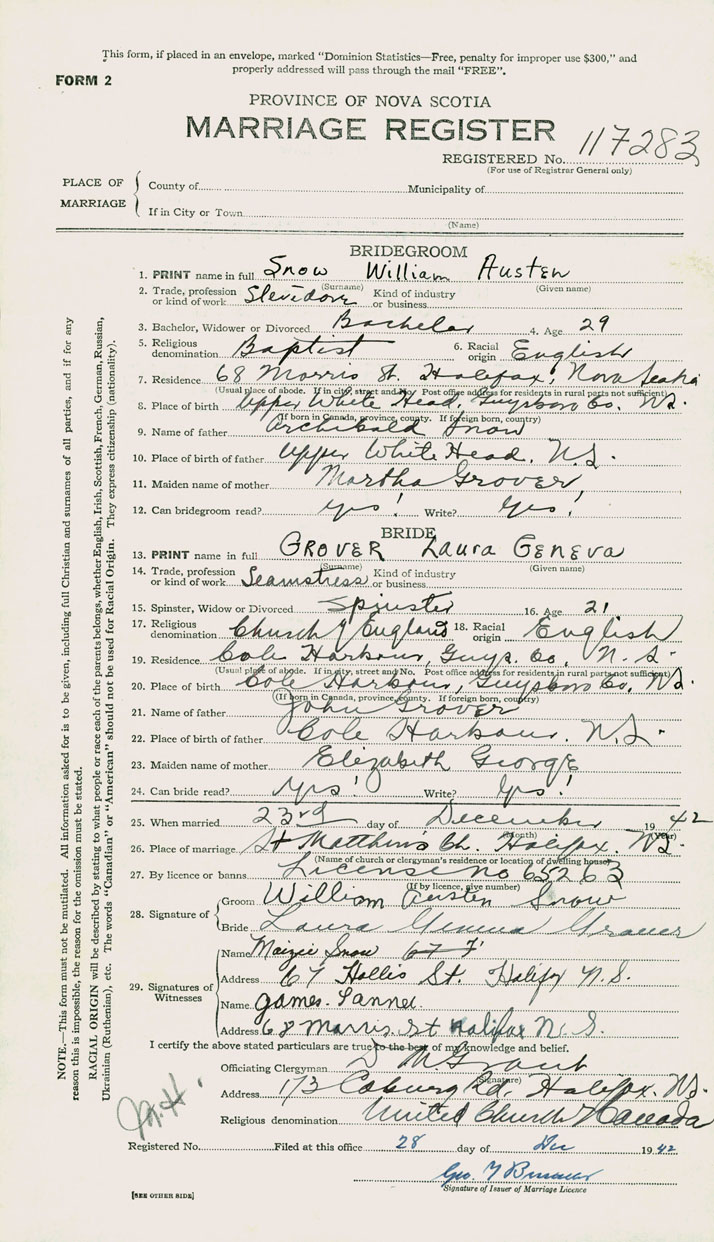 This form, if placed in an envelope, marked "Dominion Statistics—Free, penalty for improper use $300," and
properly addressed will pass through the mail "FREE".
FORM 2
PROVINCE OF NOVA SCOTIA
MARRIAGE REGISTER
REGISTERED No. 117283
(For use of Registrar General only)
PLACE OF MARRIAGE
County of Municipality of
If in City or Town
(Name)
BRIDEGROOM
1. PRINT name in full Snow William Austen
(Surname) (Given name)
2. Trade, profession or kind of work Stevedore Kind of industry or business
3. Bachelor, Widower or Divorced Bachelor 4. Age 29
5. Religious denomination Baptist 6. Racial origin English
7. Residence 68 Morris St. Halifax, Nova Scotia
(Usual place of abode. If in city, street and No. Post office address for residents in rural parts not sufficient)
8. Place of birth Upper White Head, Guysboro Co. N.S.
(If born in Canada, province, county. If foreign born, country)
9. Name of father Archibald Snow
10. Place of birth of father Upper White Head. N.S.
11. Maiden name of mother Martha Grover
12. Can bridegroom read? Yes! Write? Yes!
BRIDE
13. PRINT name in full GROVER Laura GENEVA
(Surname) (Given name)
14. Trade, profession or kind of work Seamstress Kind of industry or business
15. Spinster, Widow or Divorced Spinster 16. Age 21
17. Religious denomination Church of England 18. Racial origin English
19. Residence Cole Harbour, Guys. Co. N.S.
(Usual place of abode. If in city, street and No. Post office address for residents in rural parts not sufficient)
20. Place of birth Cole Harbour, Guysboro Co. N.S.
(If born in Canada, province, county. If foreign born, country)
21. Name of father John Grover
22. Place of birth of father Cole Harbour. N.S.
23. Maiden name of mother Elizabeth George
24. Can bride read? Yes! Write? Yes!
25. When married 23rd day of December 1942
(Month) (Year)
26. Place of marriage St Matthew's Ch. Halifax. N.S.
(Name of church or clergyman's residence or location of dwelling house)
27. By licence or banns License no 65263
(If by licence, give number)
28. Signature of
Groom William Austen Snow
Bride Laura Geneva Grover
29. Signatures of Witnesses
Name Maizie Snow
Address 67 Hollis St. Halifax N.S.
Name James
Address 68 Morris. St Halifax N.S.
I certify the above stated particulars are true to the best of my knowledge and belief.
Officiating Clergyman D M Grant
(Signature)
Address 173 Coburg Rd. Halifax. N.S.
Religious denomination United Church of Canada
Registered No. Filed at this office 28 day of Dec 1942
Geo.
Signature of Issuer of Marriage Licence
[SEE OTHER SIDE]
NOTE.—This form must not be mutilated. All information asked for is to be given, including full Christian and surnames of all parties, and if for any
reason this is impossible, the reason for the omission must be stated.
RACIAL ORIGIN will be described by stating to what people or race each of the parents belongs, whether English, Irish, Scottish, French, German, Russian,
Ukrainian (Ruthenian), etc. The words "Canadian" or "American" should not be used for Racial Origin. They express citizenship (nationality).